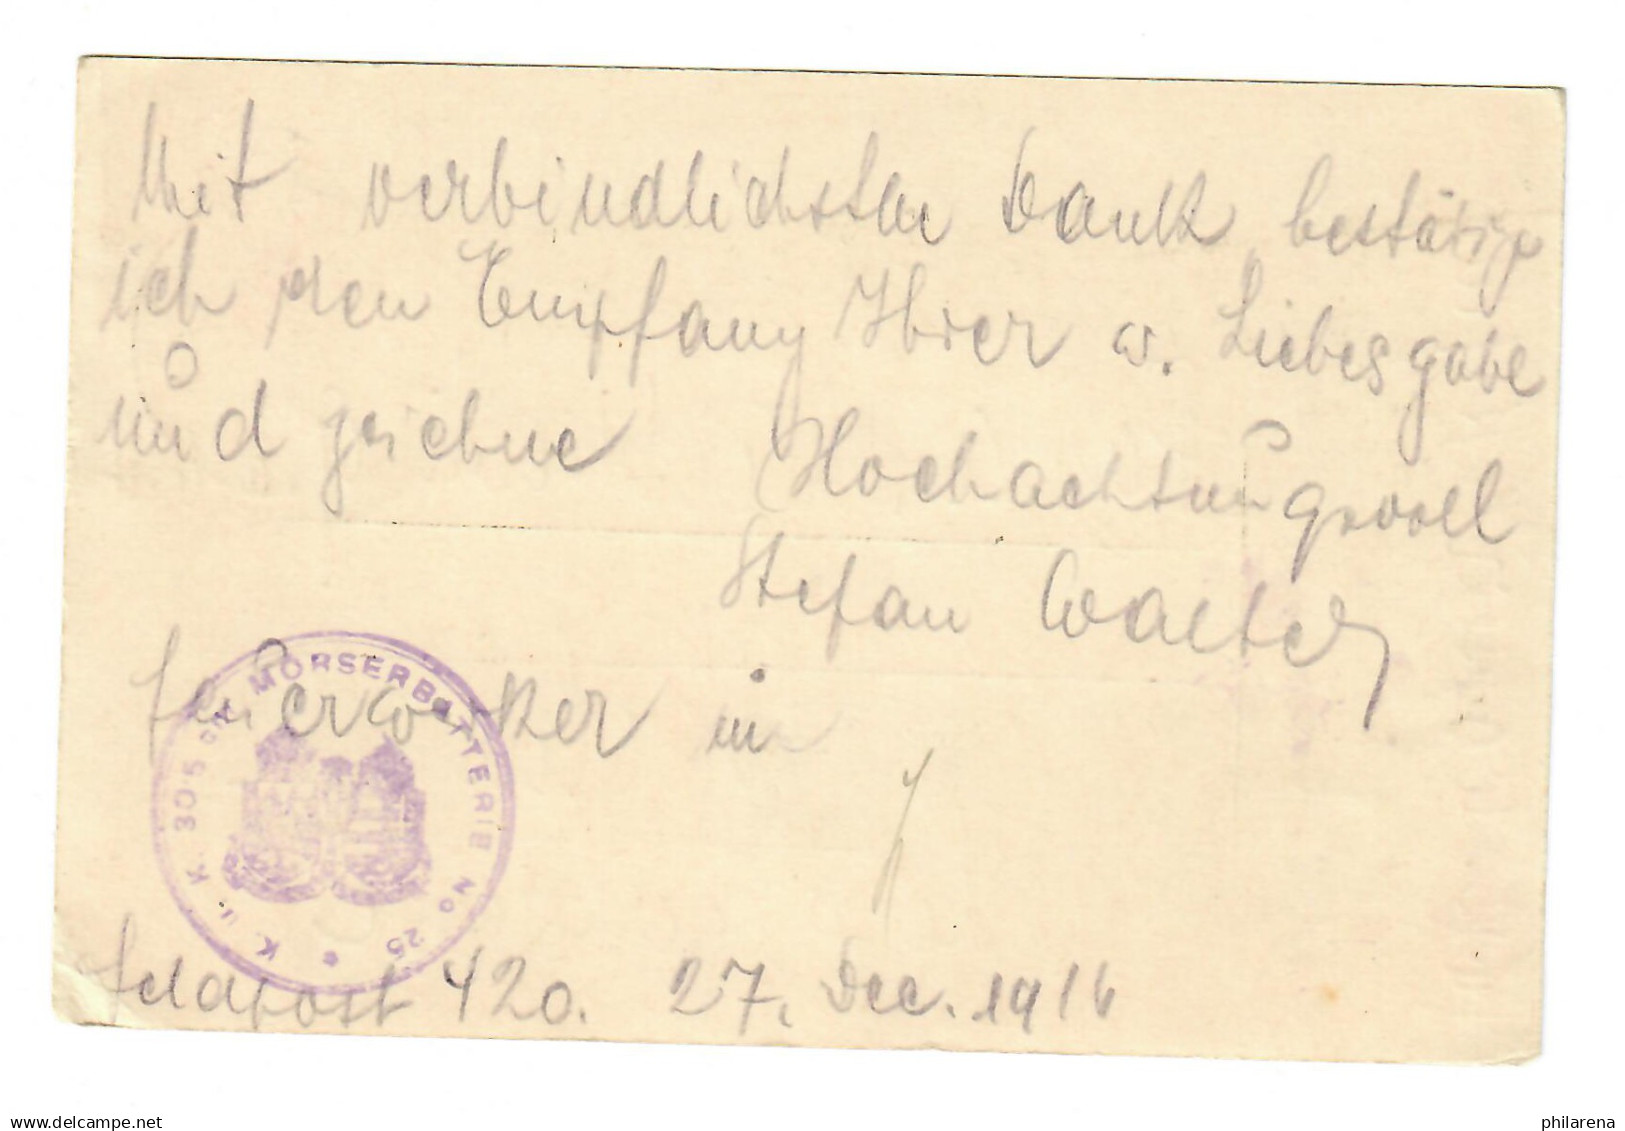 Mit verbindlichsten Dank bestätige
ich den Empfang Ihrer w. Liebesgabe
und zeichne Hochachtungsvoll
Stefan Walter
Feuerwerker m/
K. u. K. 30'5 cm MÖRSERBATTERIE No 25 *
Feldpost 420. 27. Dec. 1916
www.delcampe.net
philarena